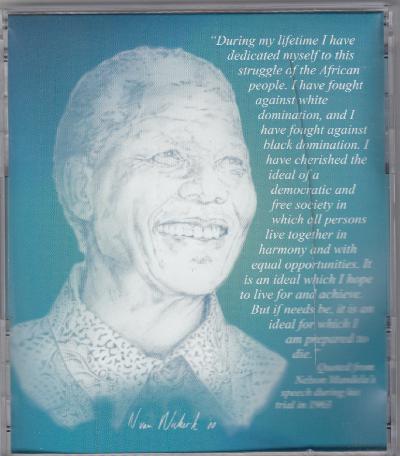 "During my lifetime I have
dedicated myself to this
struggle of the African
people. I have fought
against white
domination, and I
have fought against
black domination. I
have cherished the
ideal of a
democratic and
free society in
which all persons
live together in
harmony and with
equal opportunities. It
is an ideal which I hope
to live for and achieve.
But if needs be, it is an
ideal for which I
am prepared to
die.
Quoted from
Nelson Mandela's
speech during his
trial in